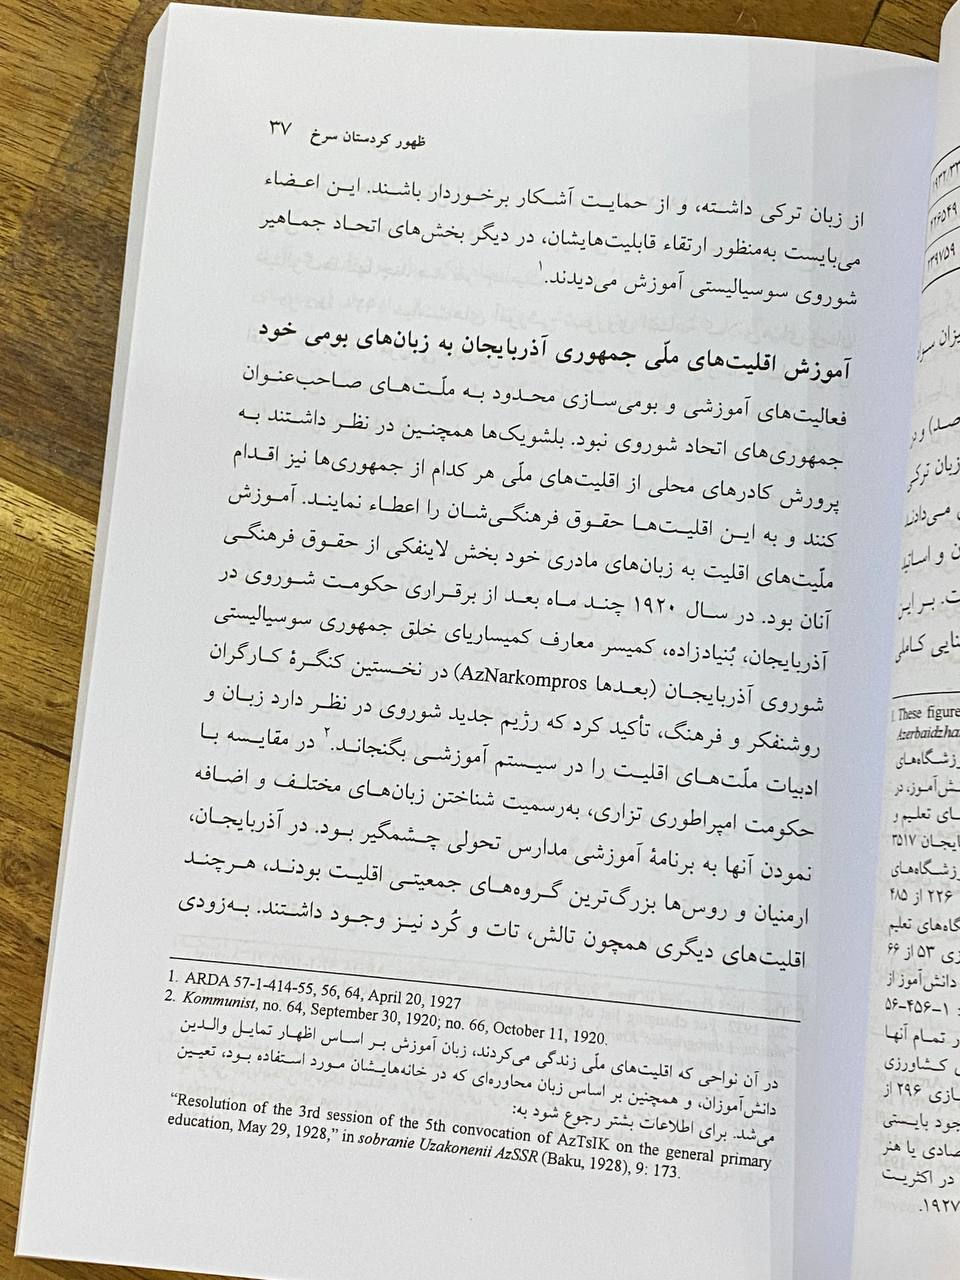 ظهور کردستان سرخ ۳۷
از زبان ترکی داشته، و از حمایت آشکار برخوردار باشند. این اعضاء
می‌بایست به‌منظور ارتقاء قابلیت‌هایشان، در دیگر بخش‌های اتحاد جماهیر
شوروی سوسیالیستی آموزش می‌دیدند.۱
آموزش اقلیت‌های ملّی جمهوری آذربایجان به زبان‌های بومی خود
فعالیت‌های آموزشی و بومی‌سازی محدود به ملّت‌های صاحب‌عنوان
جمهوری‌های اتحاد شوروی نبود. بلشویک‌ها همچنین در نظر داشتند به
پرورش کادرهای محلی از اقلیت‌های ملّی هر کدام از جمهوری‌ها نیز اقدام
کنند و به این اقلیت‌ها حقوق فرهنگی‌شان را اعطاء نمایند. آموزش
ملّیت‌های اقلیت به زبان‌های مادری خود بخش لاینفکی از حقوق فرهنگی
آنان بود. در سال ۱۹۲۰ چند ماه بعد از برقراری حکومت شوروی در
آذربایجان، بُنیادزاده، کمیسر معارف کمیساریای خلق جمهوری سوسیالیستی
شوروی آذربایجان (بعدها AzNarkompros) در نخستین کنگرهٔ کارگران
روشنفکر و فرهنگ، تأکید کرد که رژیم جدید شوروی در نظر دارد زبان و
ادبیات ملّت‌های اقلیت را در سیستم آموزشی بگنجاند.۲ در مقایسه با
حکومت امپراطوری تزاری، به‌رسمیت شناختن زبان‌های مختلف و اضافه
نمودن آنها به برنامهٔ آموزشی مدارس تحولی چشمگیر بود. در آذربایجان،
ارمنیان و روس‌ها بزرگ‌ترین گروه‌های جمعیتی اقلیت بودند، هرچند
اقلیت‌های دیگری همچون تالش، تات و کُرد نیز وجود داشتند. به‌زودی
1. ARDA 57-1-414-55, 56, 64, April 20, 1927
2. Kommunist, no. 64, September 30, 1920; no. 66, October 11, 1920.
در آن نواحی که اقلیت‌های ملّی زندگی می‌کردند، زبان آموزش بر اساس اظهار تمایل والدین
دانش‌آموزان، و همچنین بر اساس زبان محاوره‌ای که در خانه‌هایشان مورد استفاده بود، تعیین
می‌شد. برای اطلاعات بشتر رجوع شود به:
“Resolution of the 3rd session of the 5th convocation of AzTsIK on the general primary
education, May 29, 1928,” in sobranie Uzakonenii AzSSR (Baku, 1928), 9: 173.
۱۹۳۲/۳۳
۲۲۶۵۴۹
۲۳۹۷۵۹
زبان ترکی
1. These figure
Azerbaidzha
ایجان ۳۵۱۷
۲۲۶ از ۴۸۵
گاه‌های تعلم
زی ۵۳ از ۶۶
دانش‌آموز از
: ۱-۴۵۶-۵۶
ر تمام آنها
ی کشاورزی
سازی ۲۹۶ از
جود بایستی
صادی یا هنر
در اکثریت
۱۹۲۷.